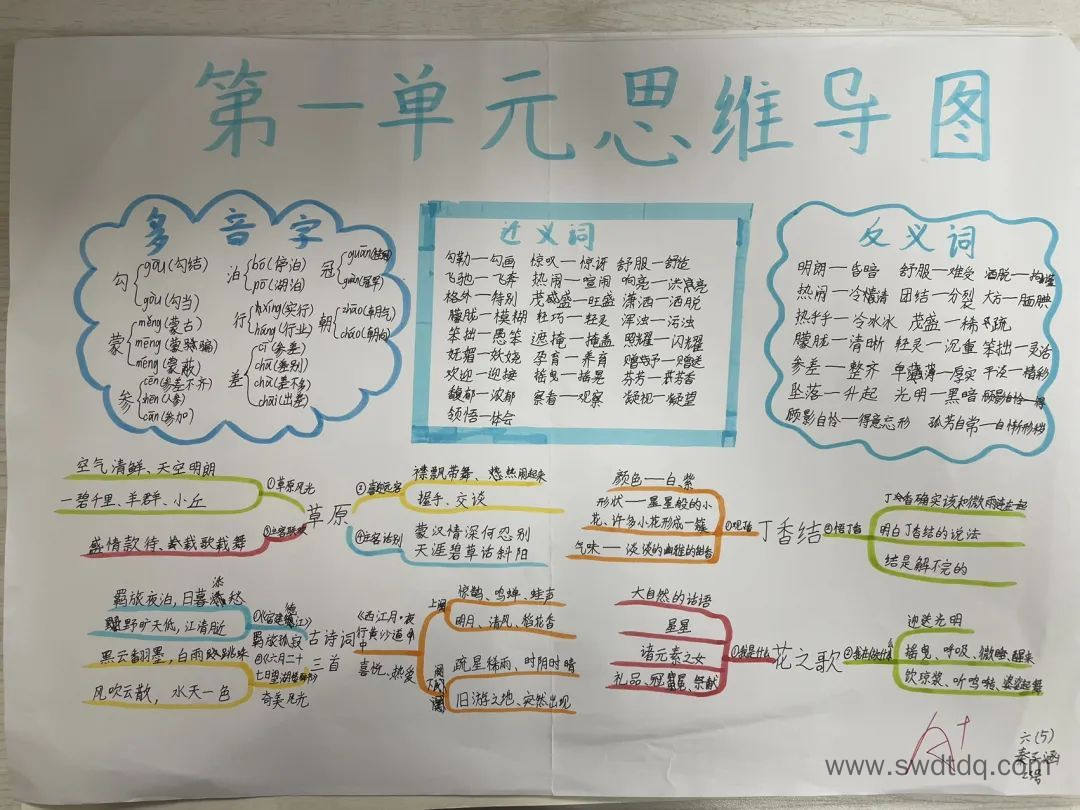 第一单元思维导图
多音字
勾 gōu(勾结) gòu(勾当)
泊 bó(停泊) pō(湖泊)
冠
蒙 měng(蒙古) mēng(蒙骗) méng(蒙蔽)
行 xíng(实行) háng(行业)
朝 zhāo(朝气) cháo(朝向)
参 cēn(参差不齐) shēn(人参) cān(参加)
差 cī(参差) chā(差别) chà(差不多) chāi(出差)
近义词
勾勒—勾画 惊叹—惊讶 舒服—舒适
飞驰—飞奔 热闹—喧闹 响亮—洪亮
格外—特别 茂盛—旺盛 潇洒—洒脱
朦胧—模糊 轻巧—轻灵 浑浊—污浊
笨拙—愚笨 遮掩—掩盖 照耀—闪耀
妩媚—妖娆 孕育—养育 赠予—赠送
欢迎—迎接 摇曳—摇晃 芬芳—芳香
馥郁—浓郁 察看—观察 凝视—凝望
领悟—体会
反义词
明朗—昏暗 舒服—难受 洒脱—拘谨
热闹—冷清 团结—分裂 大方—腼腆
热乎乎—冷冰冰 茂盛—稀疏
朦胧—清晰 轻灵—沉重 笨拙—灵活
参差—整齐 单薄—厚实 平淡—精彩
坠落—升起 光明—黑暗
顾影自怜—得意忘形 孤芳自常—自惭形秽
草原
①草原风光
空气清鲜、天空明朗
一碧千里、羊群、小丘
②喜迎远客
襟飘带舞、忽然闹起来
握手、交谈
盛情款待、载歌载舞
④主客话别
蒙汉情深何忍别
天涯碧草话斜阳
丁香结
颜色—白、紫
形状—星星般的小
花、许多小花形成一簇
气味—淡淡的幽雅的甜香
丁香确实该和微雨连在一起
明白丁香结的说法
结是解不完的
古诗词
三首
①《宿建德江》
羁旅孤寂
羁旅夜泊,日暮添愁
野旷天低,江清月近
奇美风光
黑云翻墨,白雨跳珠
风吹云散,水天一色
《西江月·夜
行黄沙道中
喜悦、热爱
上阕
惊鹊、鸣蝉、蛙声
明月、清风、稻花香
疏星稀雨、时阴时晴
旧游之地、突然出现
花之歌
①我是什么
大自然的话语
星星
诸元素之女
礼品、冠冕、祭献
迎送光明
摇曳、呼吸、微睡、醒来
饮琼浆、听鸣啭、婆娑起舞
A+
六(5)
www.swdtdq.com